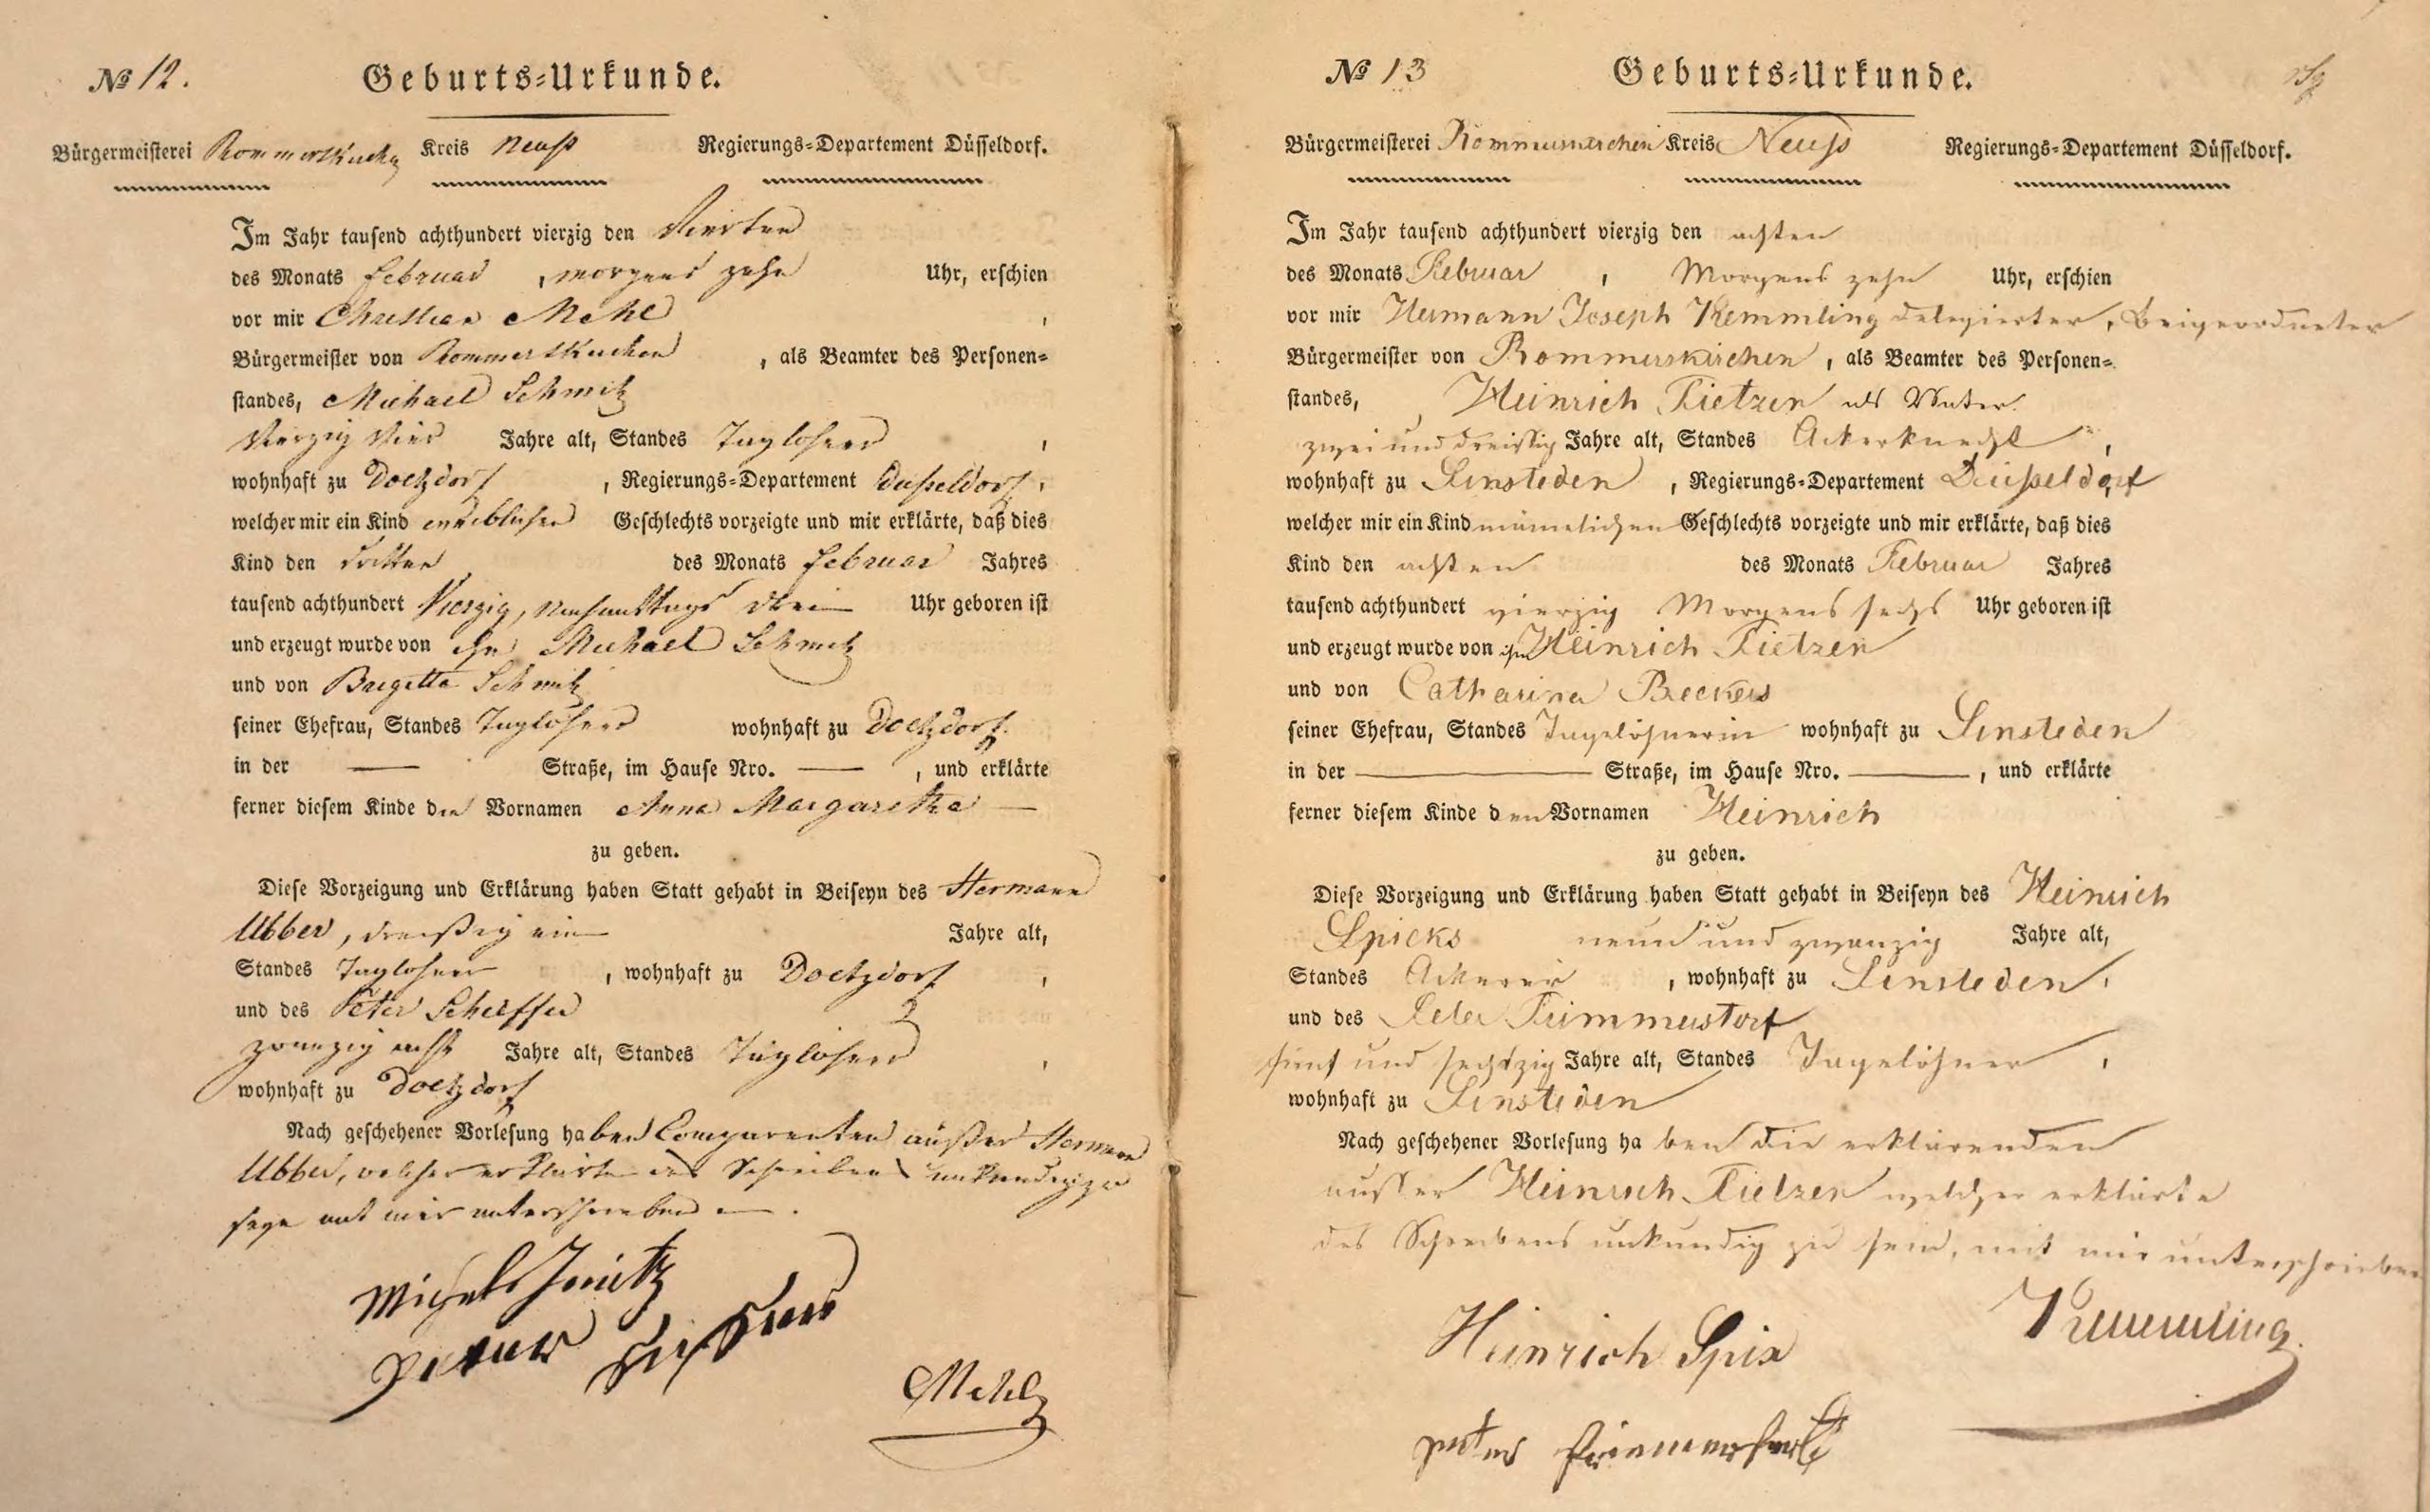 № 12. Geburts-Urkunde.
Bürgermeisterei Rommerskirchen Kreis Neuss Regierungs-Departement Düsseldorf.
Im Jahr tausend achthundert vierzig den Vierten
des Monats Februar, morgens zehn Uhr, erschien
vor mir Christian Mehl,
Bürgermeister von Rommerskirchen, als Beamter des Personen-
standes, Michael Schmitz
Vierzig Vier Jahre alt, Standes Taglöhner,
wohnhaft zu Doetzdorf, Regierungs-Departement Dusseldorf,
welcher mir ein Kind weiblichen Geschlechts vorzeigte und mir erklärte, daß dies
Kind den dritten des Monats Februar Jahres
tausend achthundert Vierzig, Nachmittags drei Uhr geboren ist
und erzeugt wurde von ihm Michael Schmitz
und von Bregitta Schmitz
seiner Ehefrau, Standes Taglöhner wohnhaft zu Doetzdorf
in der — Straße, im Hause Nro. —, und erklärte
ferner diesem Kinde den Vornamen Anna Margaretha —
zu geben.
Diese Vorzeigung und Erklärung haben Statt gehabt in Beiseyn des Hermann
Ubber, dreißig ein Jahre alt,
Standes Taglöhner, wohnhaft zu Doetzdorf,
und des Peter Scheffer
zwanzig acht Jahre alt, Standes Taglöhner,
wohnhaft zu Doetzdorf
Nach geschehener Vorlesung haben Comparenten außer Hermann
Ubber, welcher erklärte des Schreibens unkundig zu
seyn mit mir unterschrieben.
Mehl
№ 13 Geburts-Urkunde.
Bürgermeisterei Rommerskirchen Kreis Neuss Regierungs-Departement Düsseldorf.
Im Jahr tausend achthundert vierzig den achten
des Monats Februar, Morgens zehn Uhr, erschien
vor mir Hermann Joseph Kemmling delegierter, Beigeordneter
Bürgermeister von Rommerskirchen, als Beamter des Personen-
standes, Heinrich Tietzen als Vater.
zwei und dreissig Jahre alt, Standes Ackerknecht,
wohnhaft zu Sinsteden, Regierungs-Departement Düsseldorf
welcher mir ein Kind männlichen Geschlechts vorzeigte und mir erklärte, daß dies
Kind den achten des Monats Februar Jahres
tausend achthundert vierzig Morgens sechs Uhr geboren ist
und erzeugt wurde von ihm Heinrich Tietzen
und von Catharina Beckers
seiner Ehefrau, Standes Tagelöhnerin wohnhaft zu Sinsteden
in der — Straße, im Hause Nro. —, und erklärte
ferner diesem Kinde den Vornamen Heinrich
zu geben.
Diese Vorzeigung und Erklärung haben Statt gehabt in Beiseyn des Heinrich
Spicks neun und zwanzig Jahre alt,
Standes Ackerer, wohnhaft zu Sinsteden,
und des Peter
fünf und sechszig Jahre alt, Standes Tagelöhner,
wohnhaft zu Sinsteden
Nach geschehener Vorlesung haben die erklärenden
ausser Heinrich Tietzen welcher erklärte
des Schreibens unkundig zu sein, mit mir unterschrieben
Heinrich Spix Kemmling
peter